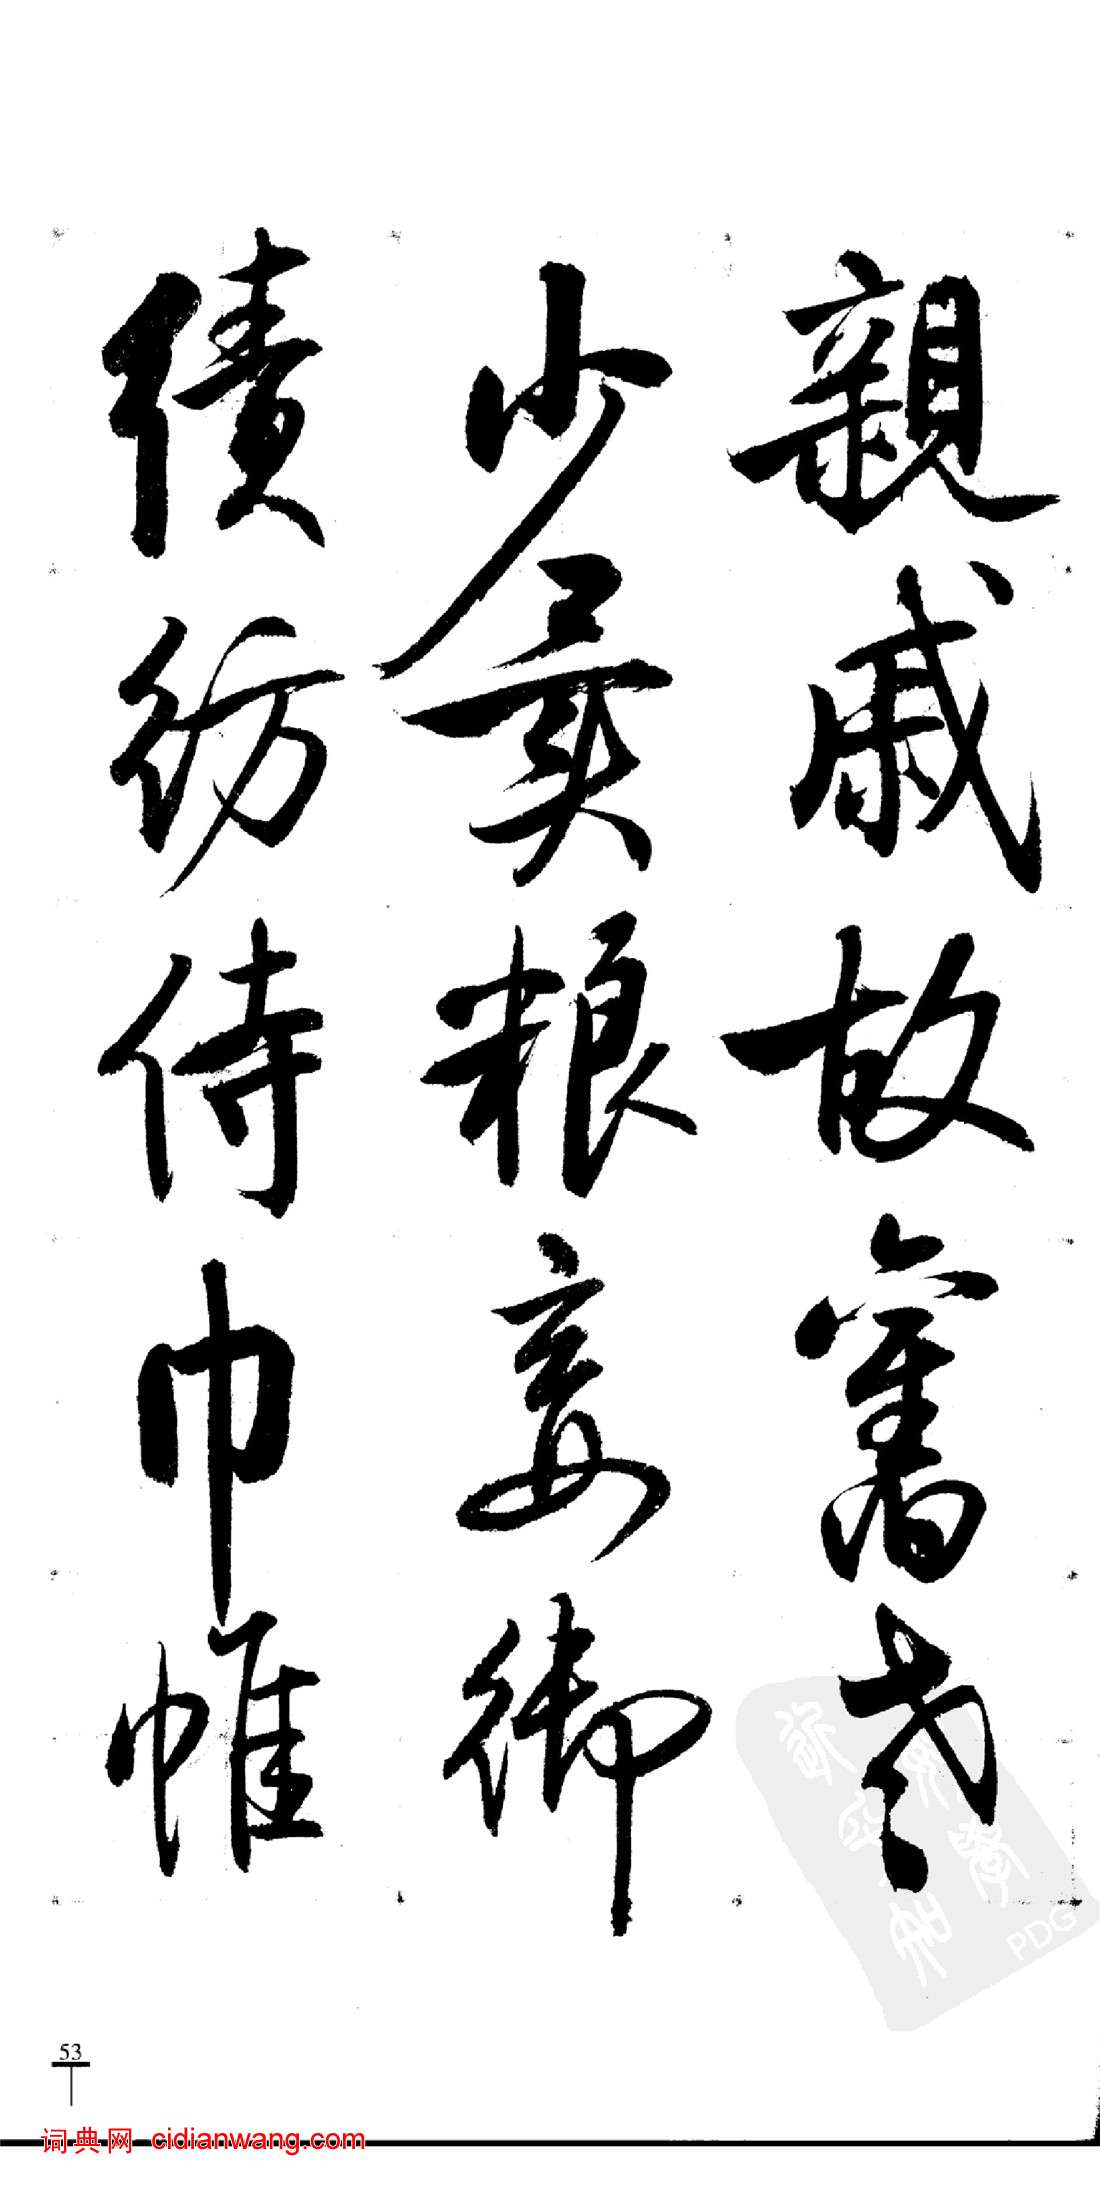 親戚故舊老
少異粮妾御
績紡侍巾帷
53
词典网 cidianwang.com
PDG